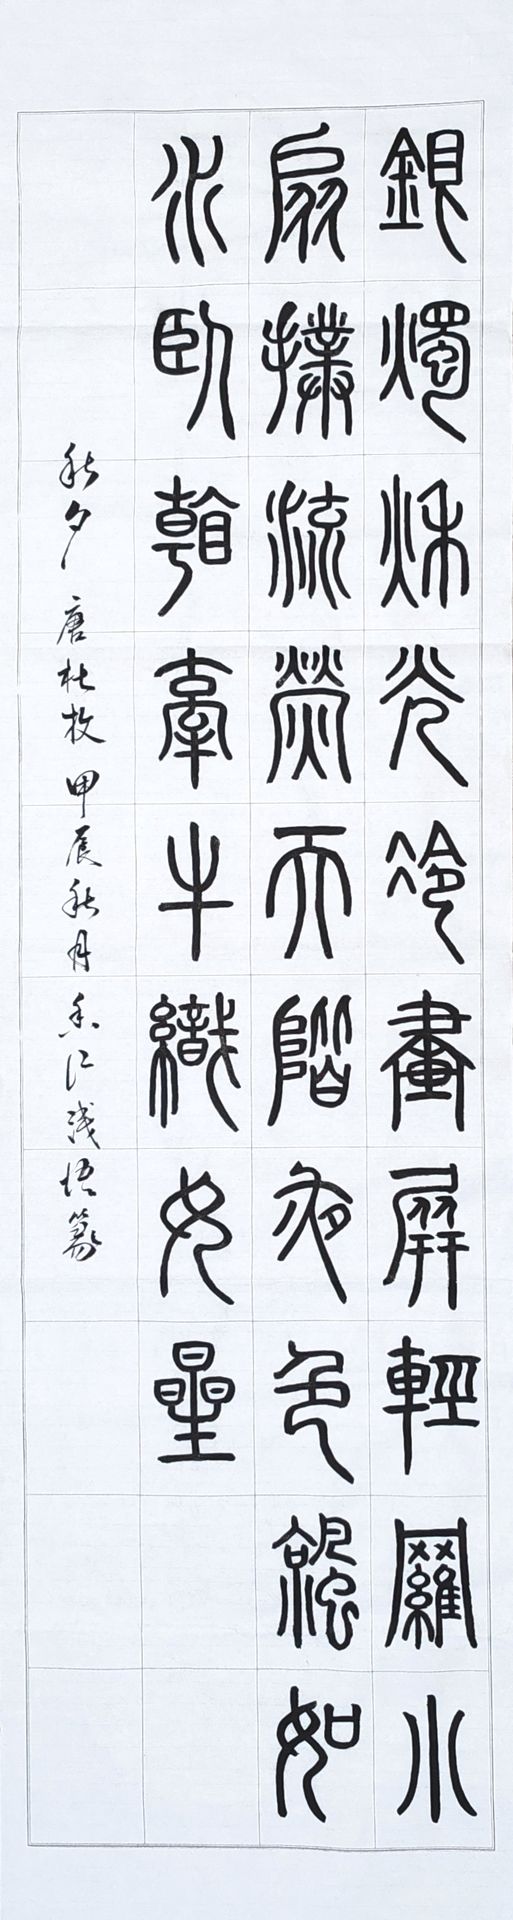 銀燭秋光冷畫屏輕羅小
扇撲流熒天階夜色涼如
水臥看牽牛織女星
秋夕 唐 杜牧 甲辰秋月 香江淺悟篆